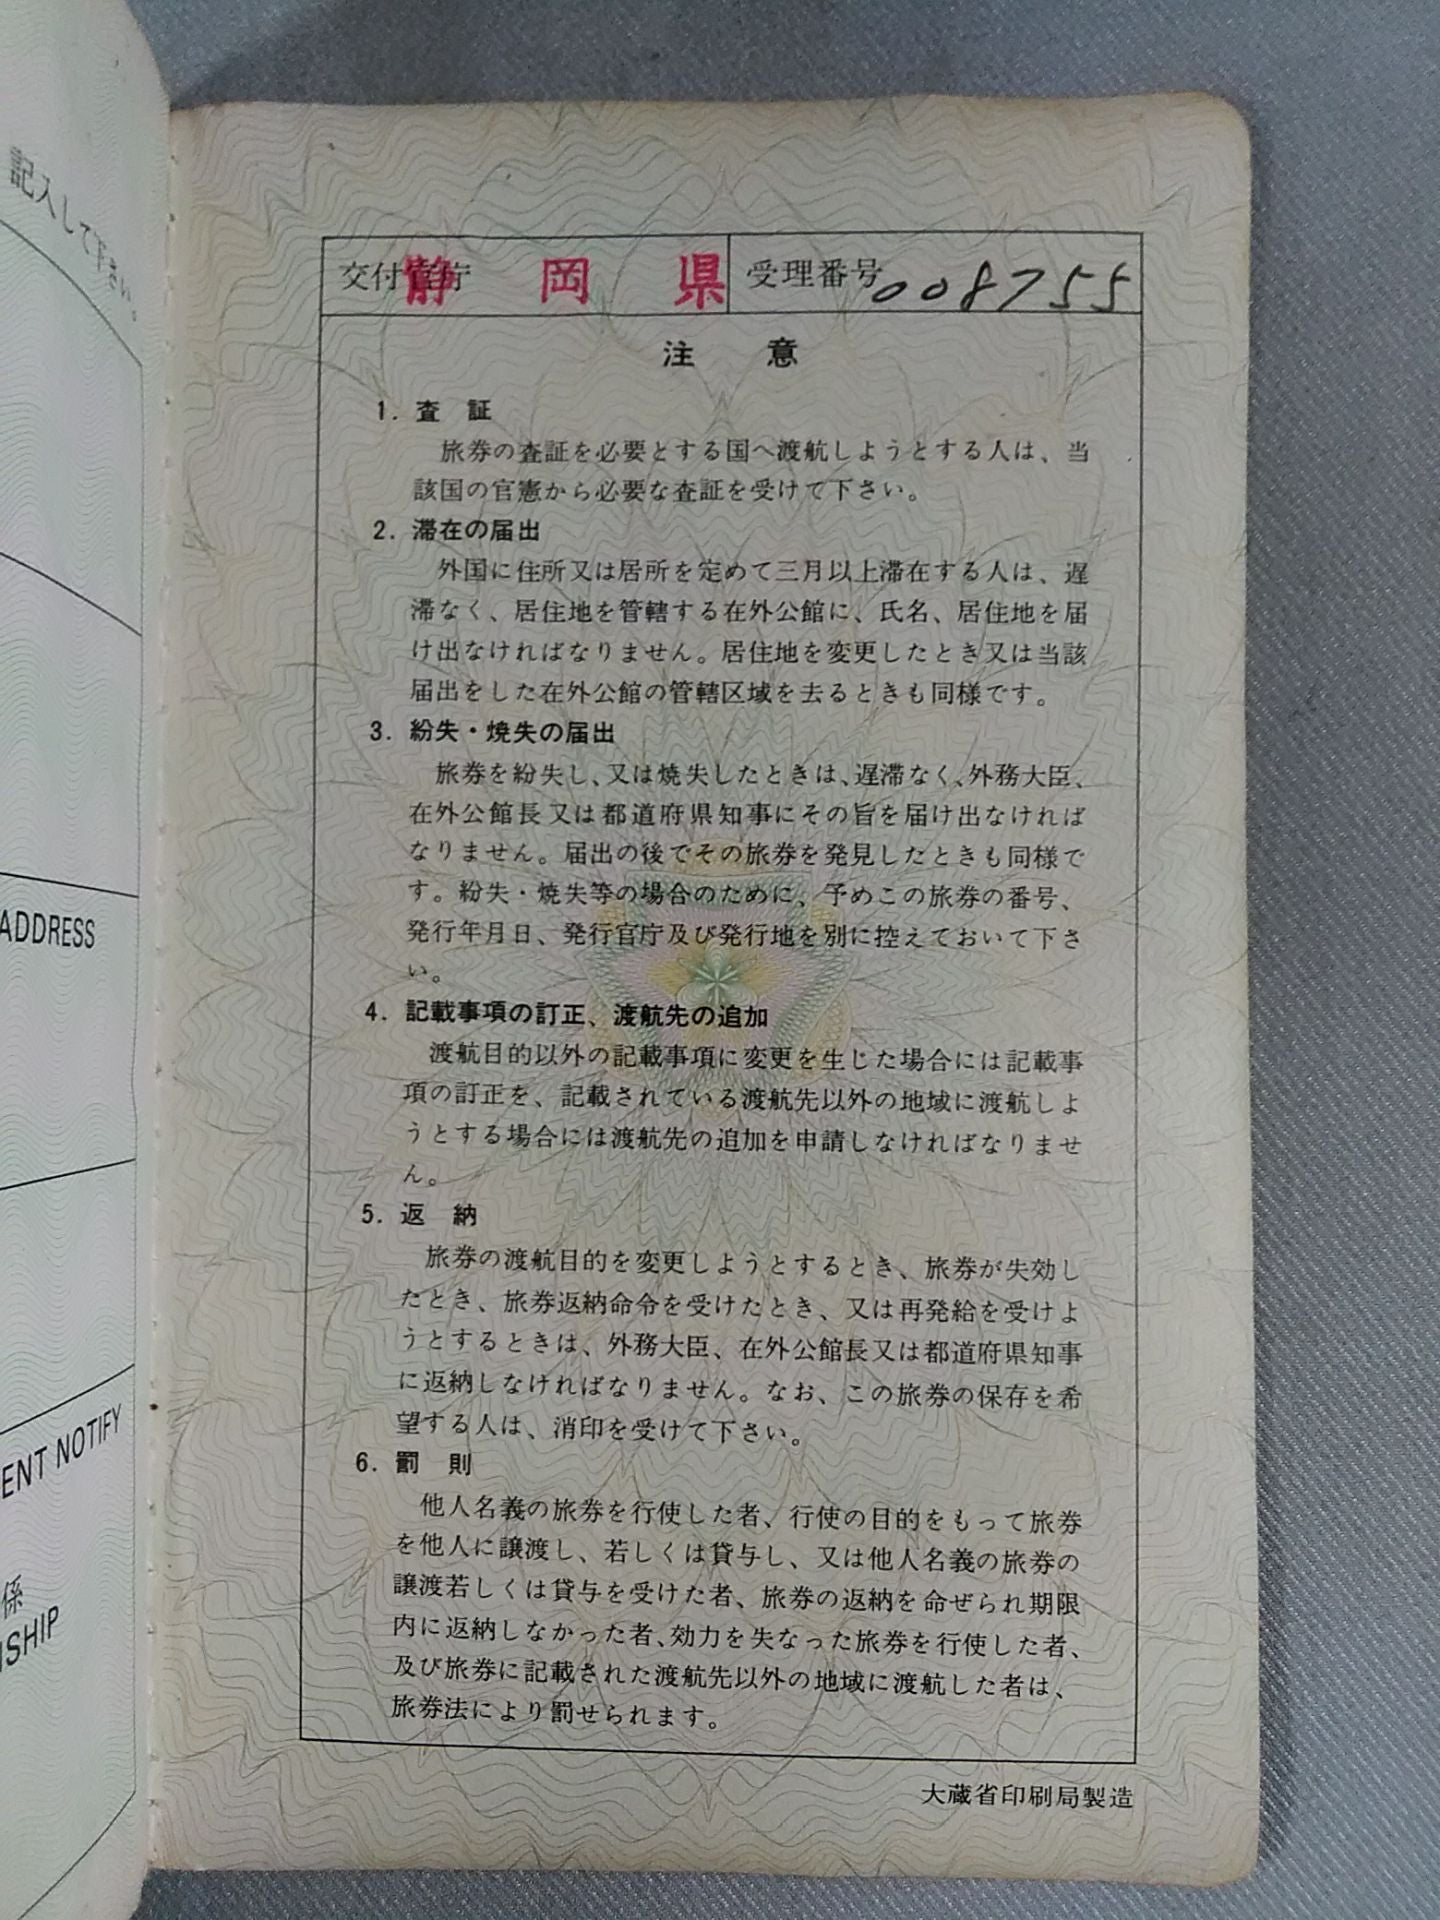 記入して下さい。
ADDRESS
ENT NOTIFY
係
NSHIP
交付官庁 静岡県 受理番号 008755
注 意
1. 査 証
旅券の査証を必要とする国へ渡航しようとする人は、当
該国の官憲から必要な査証を受けて下さい。
2. 滞在の届出
外国に住所又は居所を定めて三月以上滞在する人は、遅
滞なく、居住地を管轄する在外公館に、氏名、居住地を届
け出なければなりません。居住地を変更したとき又は当該
届出をした在外公館の管轄区域を去るときも同様です。
3. 紛失・焼失の届出
旅券を紛失し、又は焼失したときは、遅滞なく、外務大臣、
在外公館長又は都道府県知事にその旨を届け出なければ
なりません。届出の後でその旅券を発見したときも同様で
す。紛失・焼失等の場合のために、予めこの旅券の番号、
発行年月日、発行官庁及び発行地を別に控えておいて下さ
い。
4. 記載事項の訂正、渡航先の追加
渡航目的以外の記載事項に変更を生じた場合には記載事
項の訂正を、記載されている渡航先以外の地域に渡航しよ
うとする場合には渡航先の追加を申請しなければなりませ
ん。
5. 返 納
旅券の渡航目的を変更しようとするとき、旅券が失効し
たとき、旅券返納命令を受けたとき、又は再発給を受けよ
うとするときは、外務大臣、在外公館長又は都道府県知事
に返納しなければなりません。なお、この旅券の保存を希
望する人は、消印を受けて下さい。
6. 罰 則
他人名義の旅券を行使した者、行使の目的をもって旅券
を他人に譲渡し、若しくは貸与し、又は他人名義の旅券の
譲渡若しくは貸与を受けた者、旅券の返納を命ぜられ期限
内に返納しなかった者、効力を失なった旅券を行使した者、
及び旅券に記載された渡航先以外の地域に渡航した者は、
旅券法により罰せられます。
大蔵省印刷局製造